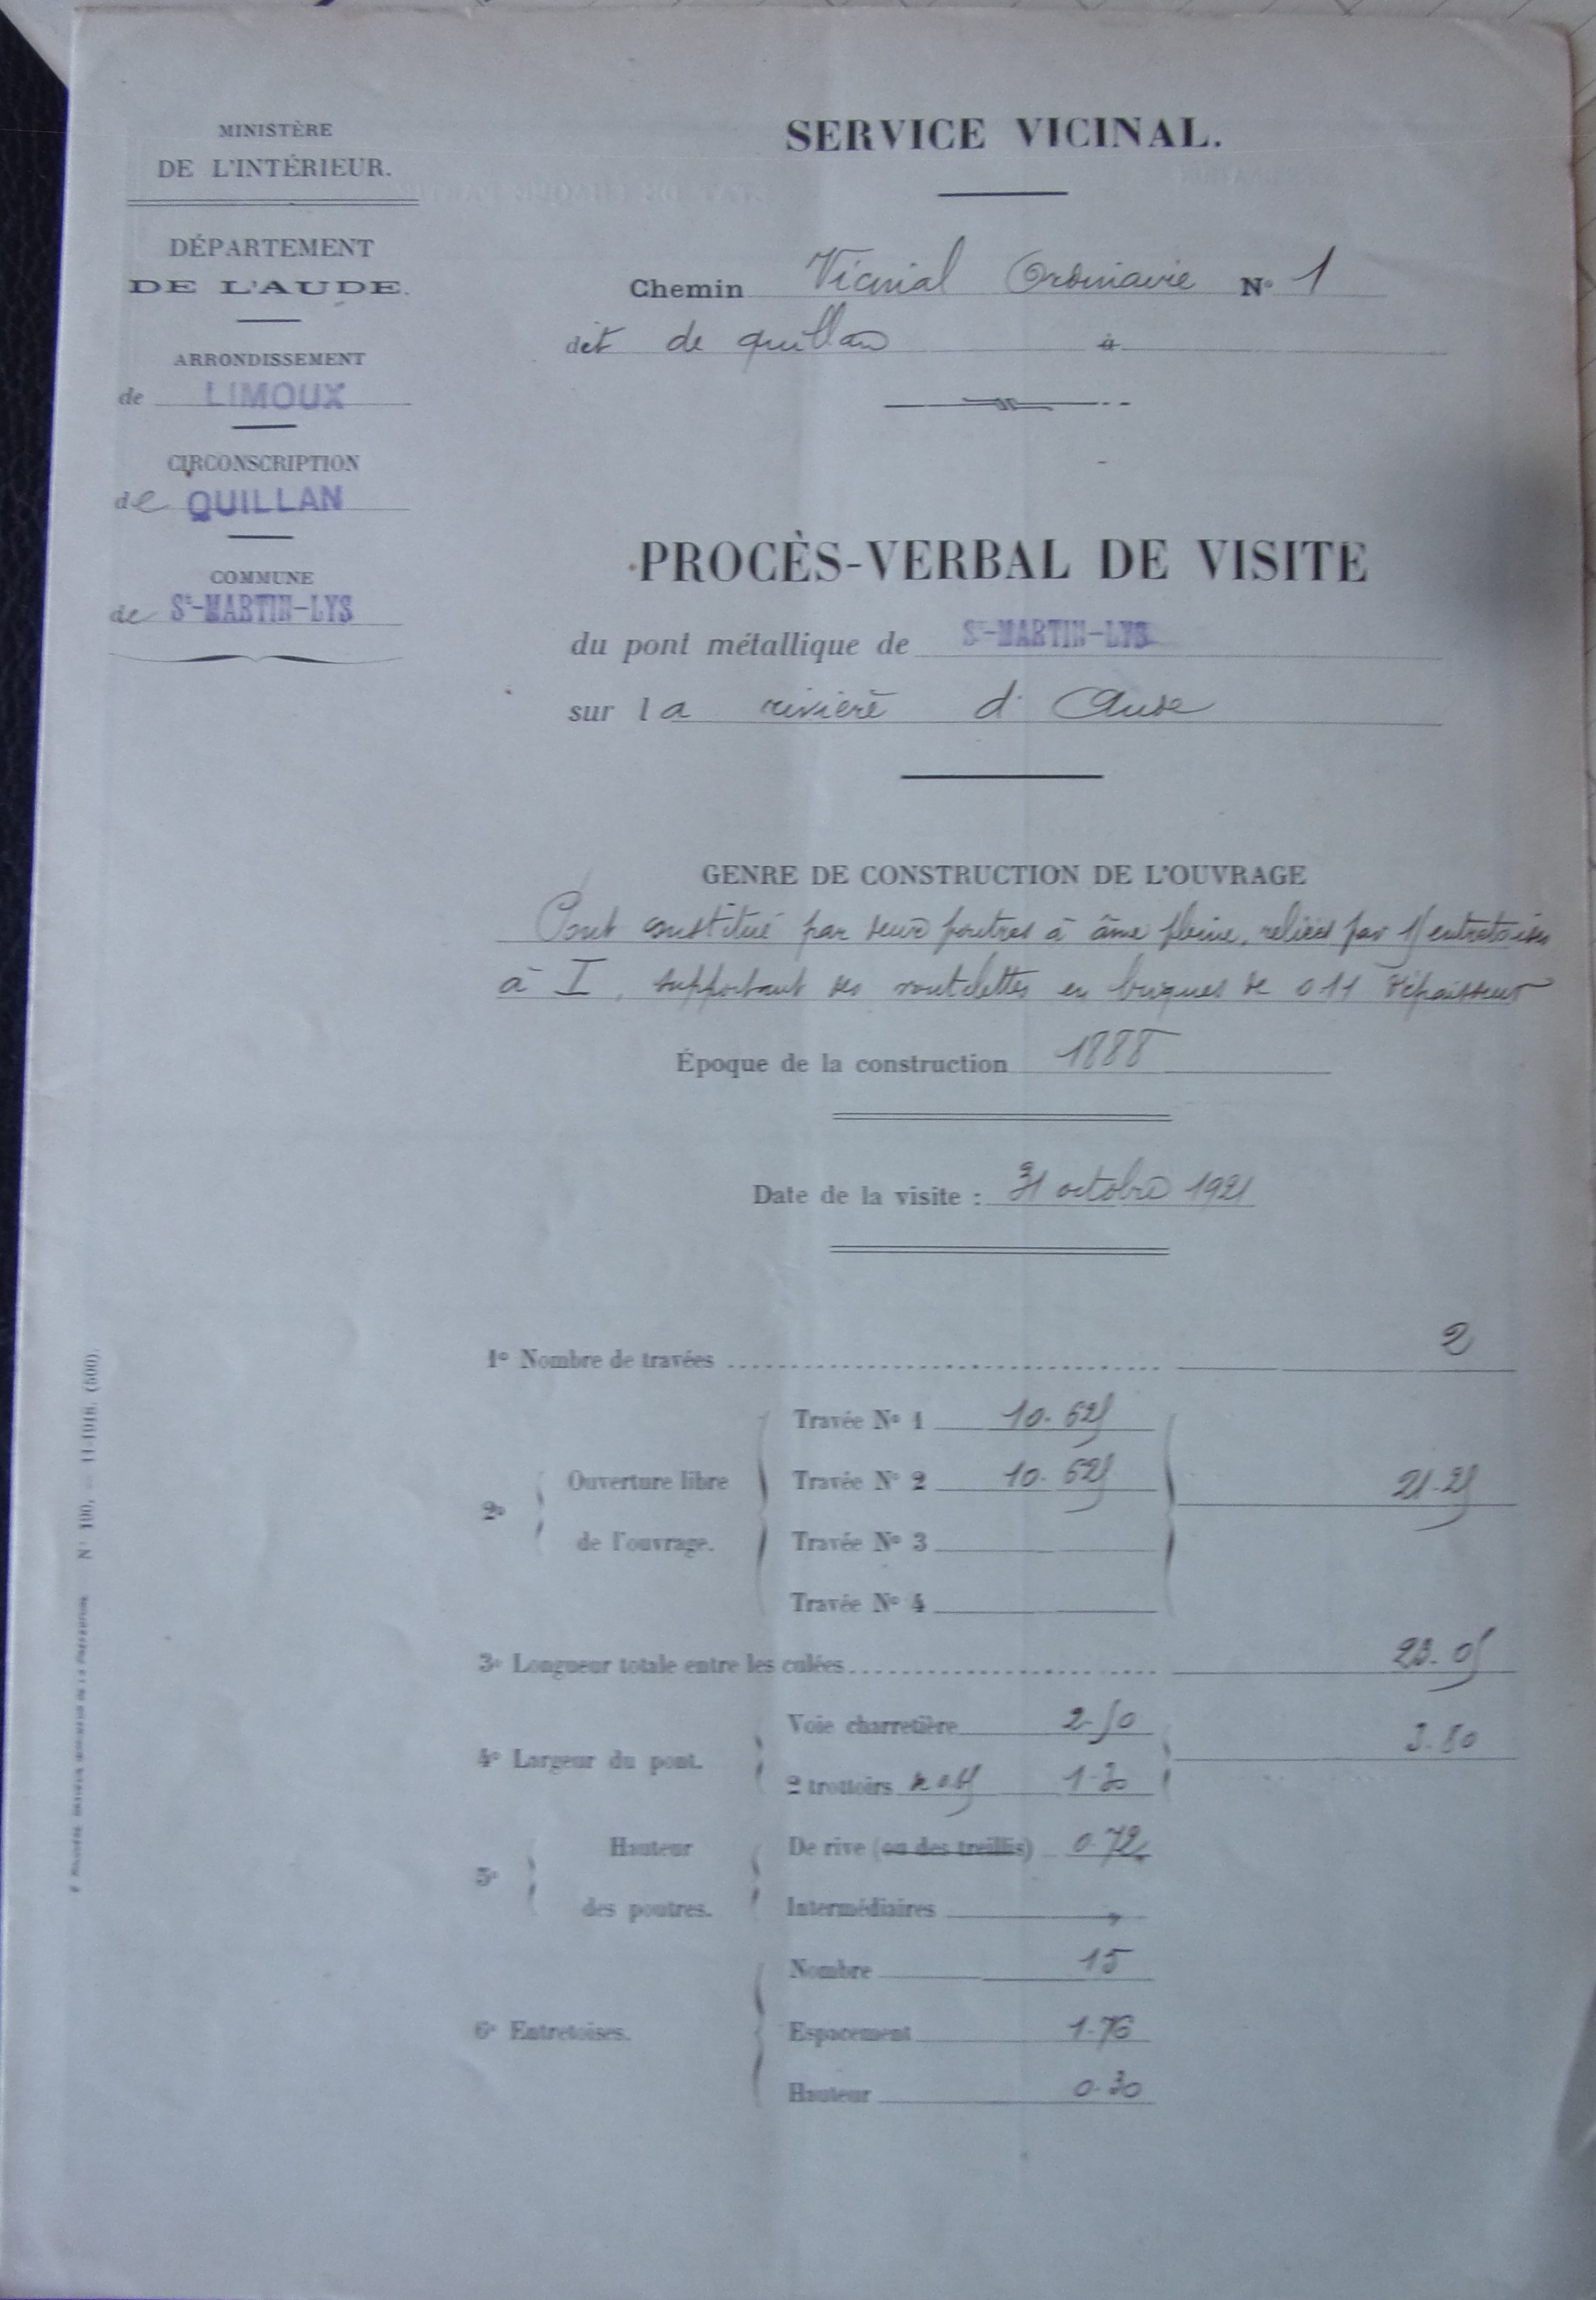 MINISTÈRE
DE L'INTÉRIEUR.
DÉPARTEMENT
DE L'AUDE.
ARRONDISSEMENT
de LIMOUX
CIRCONSCRIPTION
de QUILLAN
COMMUNE
de St-MARTIN-LYS
SERVICE VICINAL.
Chemin Vicinal Ordinaire No 1
dit de quillan à
PROCÈS-VERBAL DE VISITE
du pont métallique de St-MARTIN-LYS
sur la rivière d'Aude
GENRE DE CONSTRUCTION DE L'OUVRAGE
Pont constitué par deux poutres à âme pleine, reliées par 15 entretoises
à I, supportant des voutelettes en briques de 0 11 d'épaisseur
Époque de la construction 1888
Date de la visite : 31 octobre 1921
1o Nombre de travées 2
Travée No 1 10.625
2o Ouverture libre Travée No 2 10.625 21.25
de l'ouvrage. Travée No 3
Travée No 4
3o Longueur totale entre les culées 23.05
Voie charretière 2.50
4o Largeur du pont. 3.80
2 trottoirs de 0.65 1.30
Hauteur De rive (ou des treillis) 0.72
5o
des poutres. Intermédiaires "
Nombre 15
6o Entretoises. Espacement 1.76
Hauteur 0.30
No 100. — 11-1918. (500).